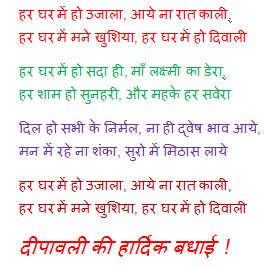 हर घर में हो उजाला, आये ना रात काली,
हर घर में मने खुशिया, हर घर में हो दिवाली
हर घर में हो सदा ही, माँ लक्ष्मी का डेरा,
हर शाम हो सुनहरी, और महके हर सवेरा
दिल हो सभी के निर्मल, ना ही द्वेष भाव आये,
मन में रहे ना शंका, सुरो में मिठास लाये
हर घर में हो उजाला, आये ना रात काली,
हर घर में मने खुशिया, हर घर में हो दिवाली
दीपावली की हार्दिक बधाई !